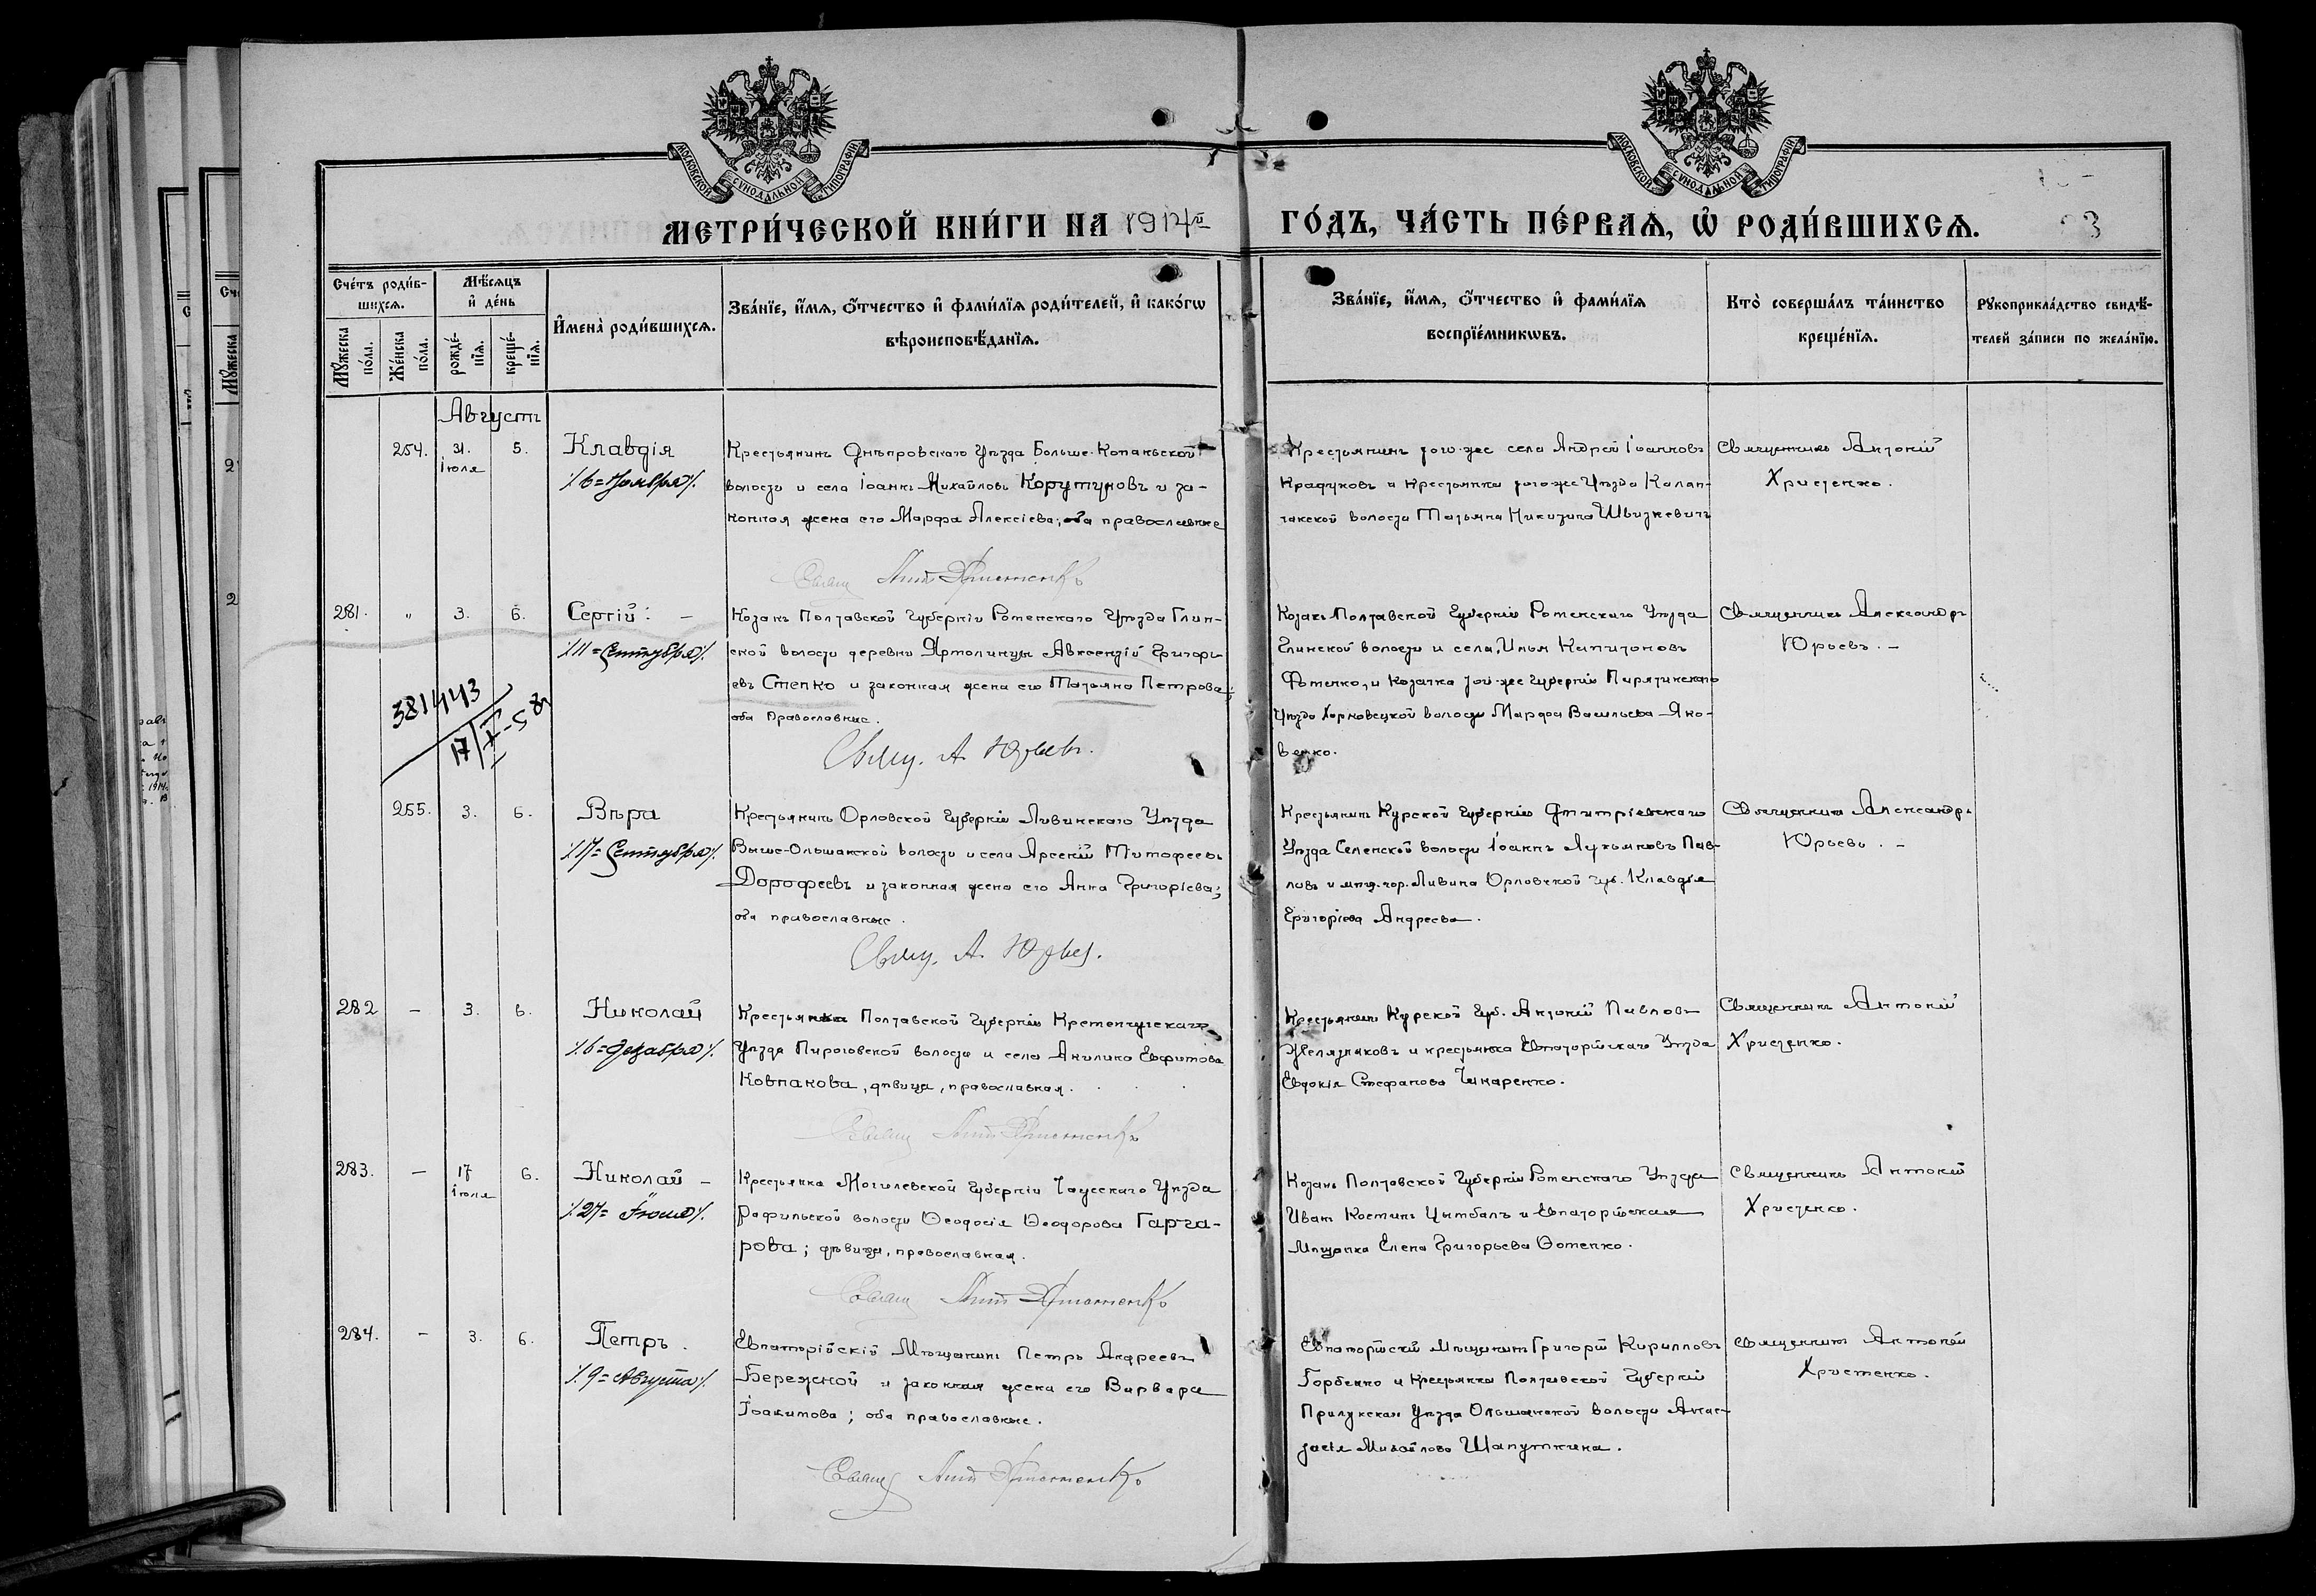 МОСКОВСКОЙ СУНОДАЛЬНОЙ ТИПОГРАФІИ
МОСКОВСКОЙ СУНОДАЛЬНОЙ ТИПОГРАФІИ
МЕТРИ́ЧЕСКОЙ КНИ́ГИ НА 1914й ГО́ДЪ, ЧА́СТЬ ПЕ́РВАЯ, Ѡ҆ РОДИ́ВШИХСЯ.
Сче́тъ роди́в-
шихся.
Мѣ́сяцъ
и҆ де́нь
Мꙋ́жеска
по́ла.
Же́нска
по́ла.
рожде́-
нїя.
креще́-
нїя.
И҆мена̀ роди́вшихся.
Зва́нїе, и҆́мя, ѻ҆́тчество и҆ фами́лїя роди́телей, и҆ како́гѡ
вѣроисповѣ́данїя.
Зва́нїе, и҆́мя, ѻ҆́тчество и҆ фами́лїя
воспрїе́мникѡвъ.
Кто̀ соверша́лъ та́инство
креще́нїя.
Рꙋкоприкла́дство свидѣ́-
телей за́писи по жела́нїю.
Августъ
254. 31. Іюля 5.
Клавдія
/6=Ноября/.
Крестьянинъ Днѣпровскаго Уѣзда Больше-Копаньской
волости и села Іоаннъ Михайловъ Корутуновъ и за-
конная жена его Марфа Алексіева; оба православные
Свящ Ант Христенко
Крестьянинъ того-же села Андрей Іоанновъ
Крадуковъ и крестьянка того-же Уѣзда Калан-
чакской волости Татьяна Никитина
Священникъ Антоній
Христенко.
281. " 3. 6.
Сергій: —
/11=Сентября/.
Козакъ Полтавской Губерніи Роменскаго Уѣзда Глин-
ской волости деревни Ярмолинцы Авксентій Григорь-
евъ Степко и законная жена его Татьяна Петрова;
оба православные.
Свящ. А Юрьевъ.
Козакъ Полтавской Губерніи Роменскаго Уѣзда
Глинской волости и села, Илья Капитоновъ
Фтенко, и козачка той-же губерніи Пирятинскаго
Уѣзда Харковецкой волости Марфа Васильева Яко-
венко.
Священникъ Александръ
Юрьевъ. —
381443
17/X-58
255. 3. 6.
Вѣра
/17=Сентября/.
Крестьянинъ Орловской Губерніи Ливинскаго Уѣзда
Выше-Ольшанской волости и села Арсеній Тимофеевъ
Дорофеевъ и законная жена его Анна Григоріева;
оба православные.
Свящ. А. Юрьев.
Крестьянинъ Курской Губерніи Дмитріевскаго
Уѣзда Селенской волости Іоаннъ Лукьяновъ Пав-
ловъ и мѣщ. гор. Ливина Орловской губ. Клавдія
Григоріева Андреева.
Священникъ Александръ
Юрьевъ. —
282 — 3. 6.
Николай
/6=Декабря/.
Крестьянка Полтавской Губерніи Кременчугскаго
Уѣзда Пироговской волости и села Акилина Евфимова
Ковпакова, дѣвица, православная.
Свящ Ант Христенко
Крестьянинъ Курской Губ. Антоній Павловъ
Желязняковъ и крестьянка Евпаторійскаго Уѣзда
Евдокія Стефанова Чинаренко.
Священникъ Антоній
Христенко.
283. — 17 Іюля 6.
Николай —
/27= Іюля/.
Крестьянка Могилевской Губерніи Чаусскаго Уѣзда
Радильской волости Ѳеодосія Ѳеодорова Гарга-
рова; дѣвица, православная.
Свящ Ант Христенко
Козакъ Полтавской Губерніи Роменскаго Уѣзда
Иванъ Костинъ Цымбалъ и Евпаторійская
Мѣщанка Елена Григорьева Ѳоменко.
Священникъ Антоній
Христенко.
284. — 3. 6.
Петръ.
/9=Августа/.
Евпаторійскій Мѣщанинъ Петръ Андреевъ
Бережной и законная жена его Варвара
Іоакимова; оба православные.
Свящ Ант Христенко
Евпаторійскій Мѣщанинъ Григорій Кирилловъ
Горбенко и Крестьянка Полтавской Губерніи
Прилукскаго Уѣзда Ольшанской волости Анас-
тасія Михайлова Шапуткина.
Священникъ Антоній
Христенко.